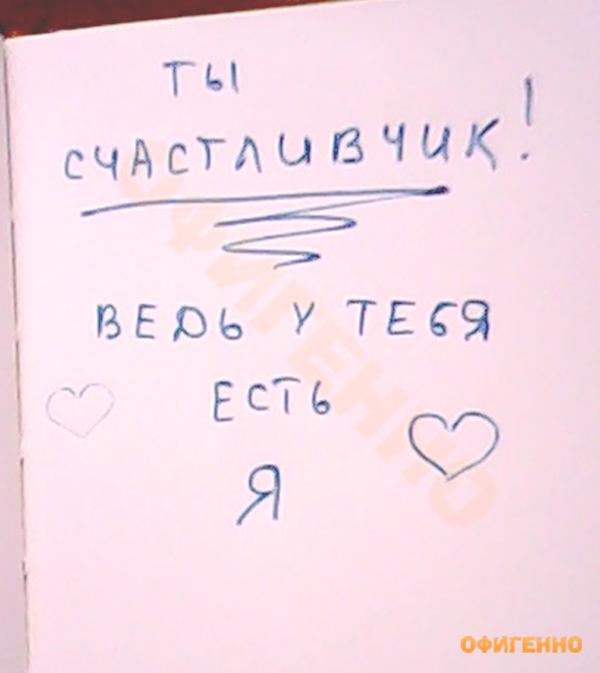 ТЫ
СЧАСТЛИВЧИК!
ВЕДЬ У ТЕБЯ
ЕСТЬ
Я
ОФИГЕННО
ОФИГЕННО